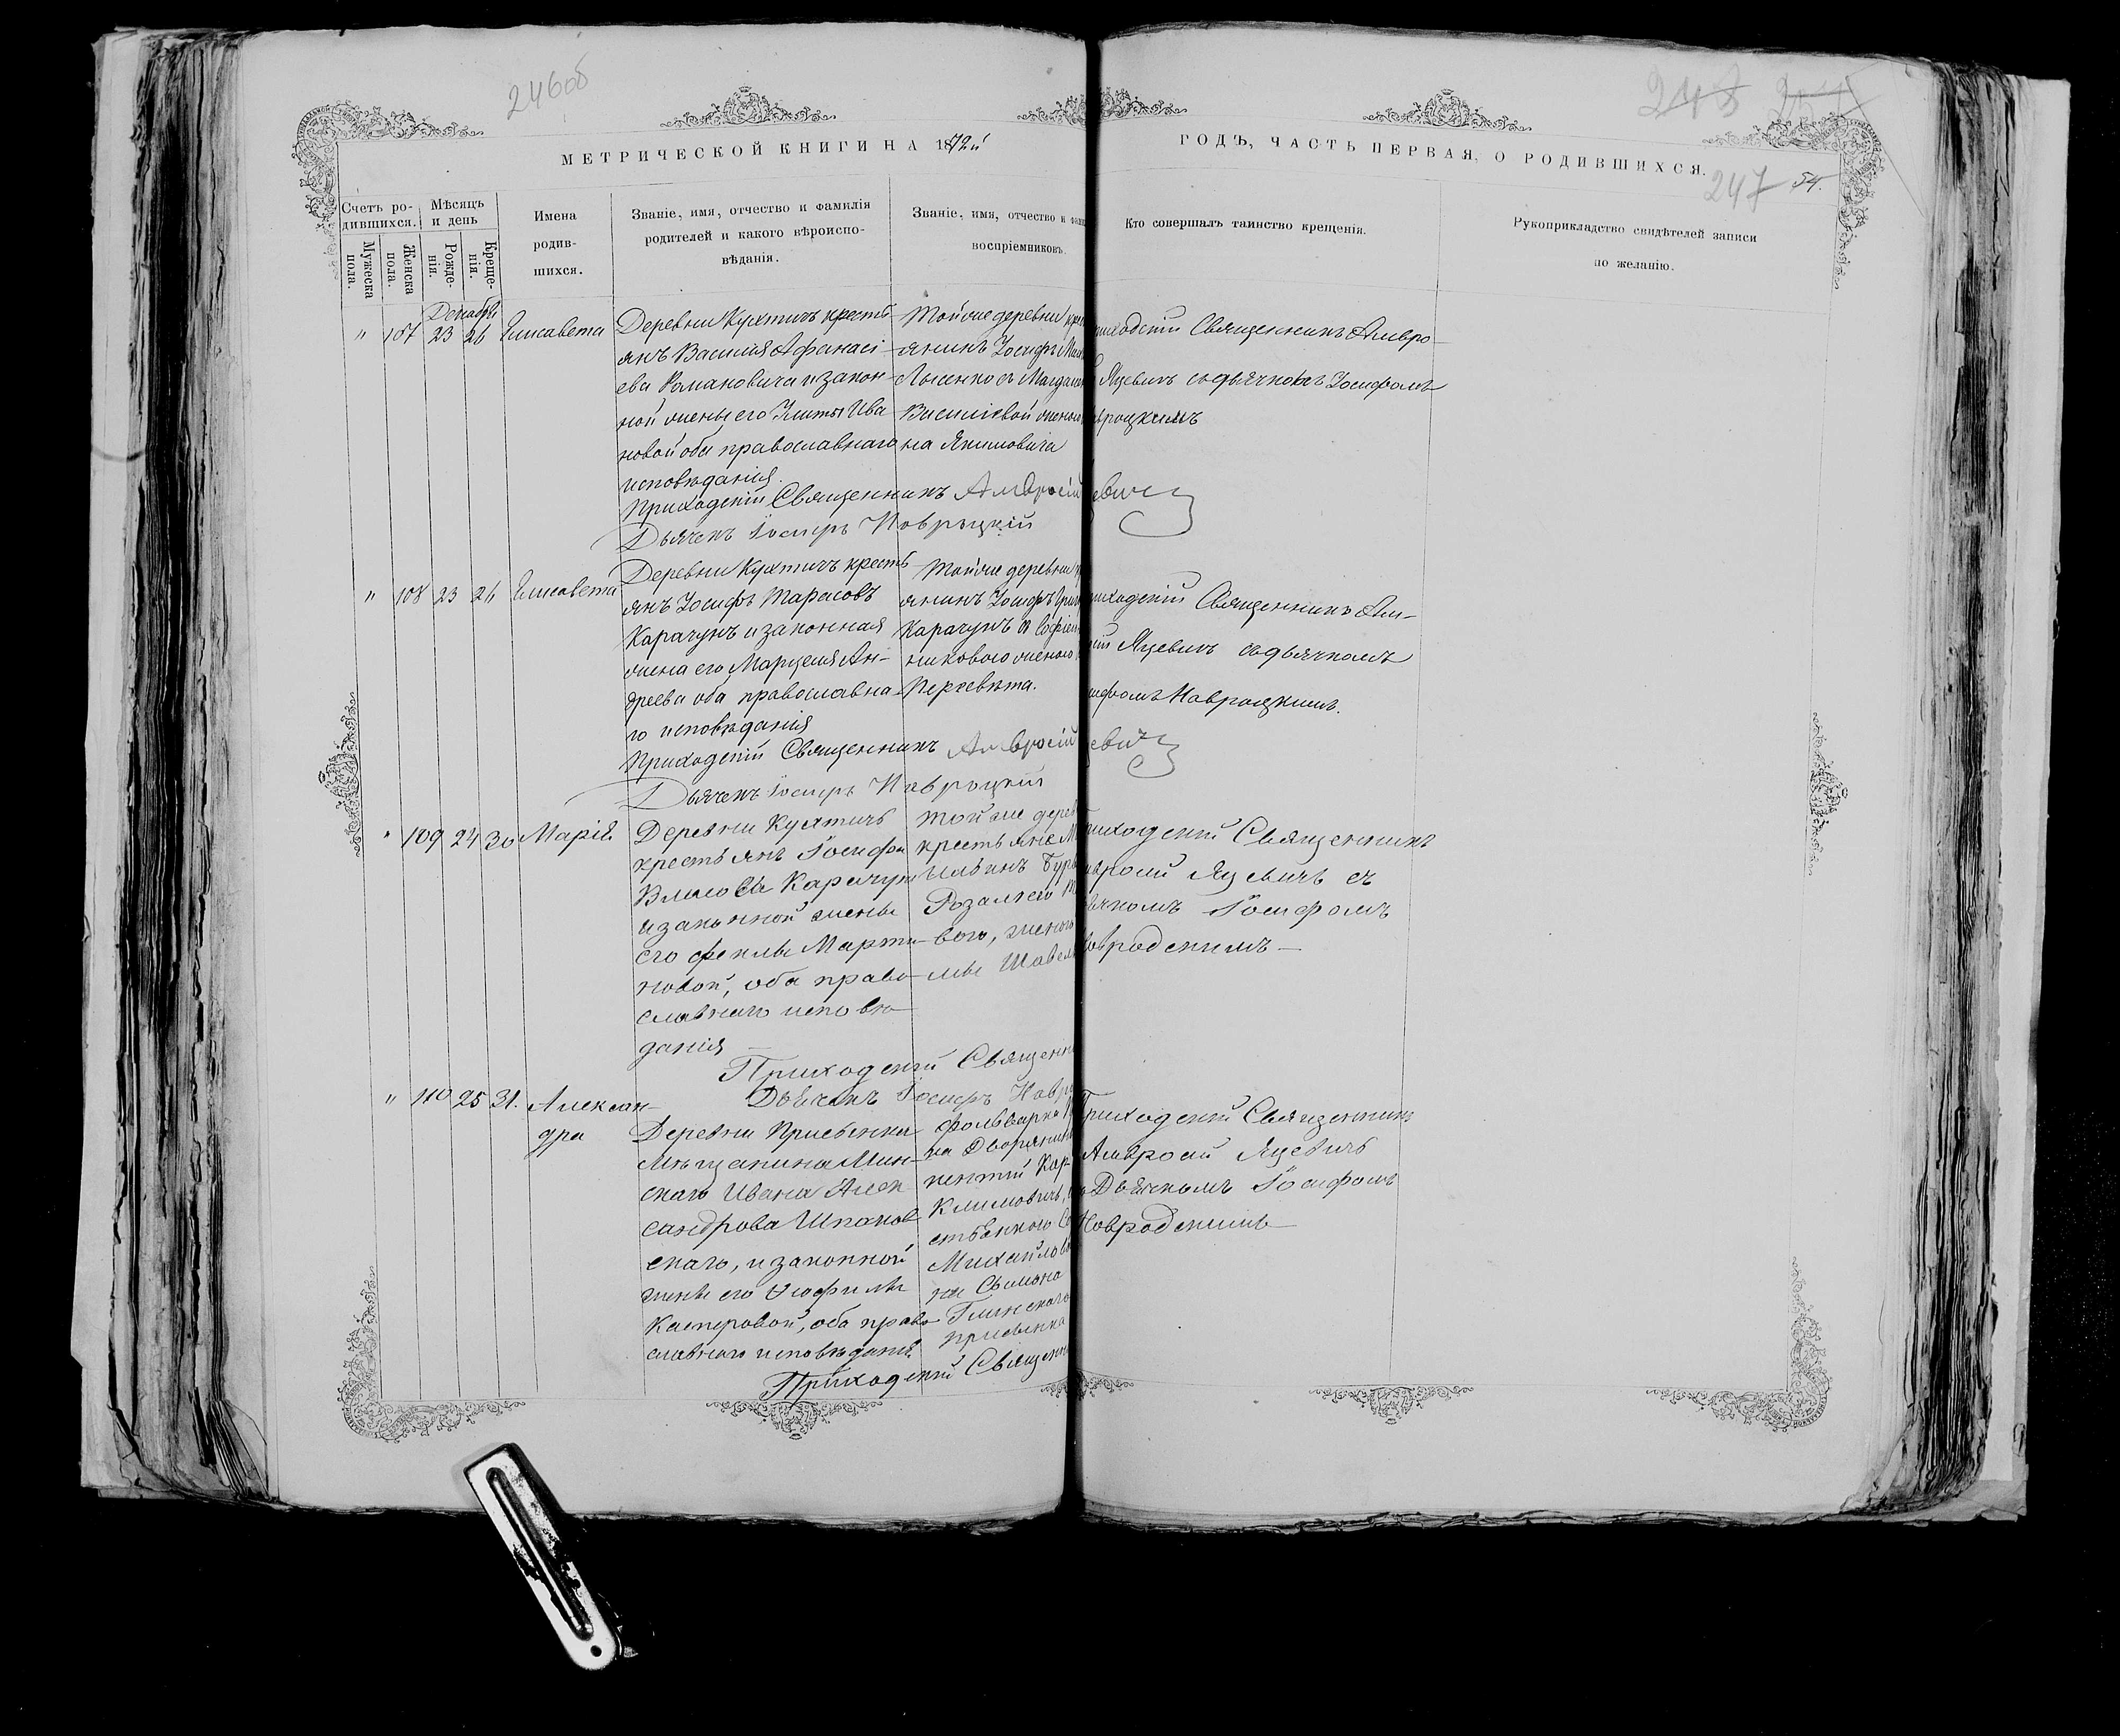 246об
248 251
МЕТРИЧЕСКОЙ КНИГИ НА 1872й
ГОДЪ, ЧАСТЬ ПЕРВАЯ, О РОДИВШИХСЯ.
247 54.
Счетъ ро-
дившихся.
Мужеска пола.
Женска пола.
Мѣсяцъ
и день
Рожде-
нія.
Креще-
нія.
Имена
родив-
шихся.
Званіе, имя, отчество и фамилія
родителей и какого вѣроиспо-
вѣданія.
Званіе, имя, отчество и фами
воспріемниковъ.
Кто совершалъ таинство крещенія.
Рукоприкладство свидѣтелей записи
по желанію.
Декабря
" 107 23 26 Елисавета
Деревни Кухтичъ кресть-
янъ Василія Афанасі-
ева Романовича и закон-
ной жены его Улиты Ива
новой оба православнаго
исповѣданія.
Той же деревни крес
янинъ Іосифъ
Лысенко съ Магдален
Василіевой женою
на Якимовича
риходскій Священникъ Амвро-
Яцевичъ съ дьячкомъ Іосифомъ
вроцкимъ
Приходскій Священникъ Амвросій евичъ
Дьячекъ Іосифъ Навроцкій
" 108 23 26 Елисавета
Деревни Кухтичъ кресть-
янъ Іосифъ Тарасовъ
Карачунъ и законная
жена его Марцеля Ан-
дреева оба православна-
го исповѣданія
Той же деревни
янинъ Іосифъ Григ
Карачунъ и Софіею
никовою женою
Пересвѣта.
риходскій Священникъ Ам-
сій Яцевичъ съ дьячкомъ
сифомъ Навроцкимъ.
Приходскій Священникъ Амвросій евичъ
Дьячекъ Іосифъ Навроцкій
" 109 24 30 Марія
Деревни Кухтичъ
крестьянъ Іосифа
Власова Карачуна
и законной жены
его Феклы Марти-
новой, оба право-
славнаго исповѣ-
данія
Той же дерев
крестьяне М
Ильинъ Бур
Розалією
вою, женою
мы Шавел
риходскій Священникъ
вросій Яцевичъ съ
ьячкомъ Іосифомъ
вродскимъ—
Приходскій Священни
Дьячекъ Іосифъ Навр
" 110 25 31. Алексан-
дра
Деревни Присынка
Мѣщанина Мин-
скаго Ивана Алек
сандрова Шпаков
скаго, и законной
жены его Теофили
Касперовой, оба право-
славнаго исповѣданія
фольварка
на Дворянин
Климовичъ,
Михайлов
на Симона
Глинскаго
присынка
Приходскій Священникъ
Амвросій Яцевичъ
Дьячкомъ Іосифомъ
Новродскимъ—
Приходскій Священн